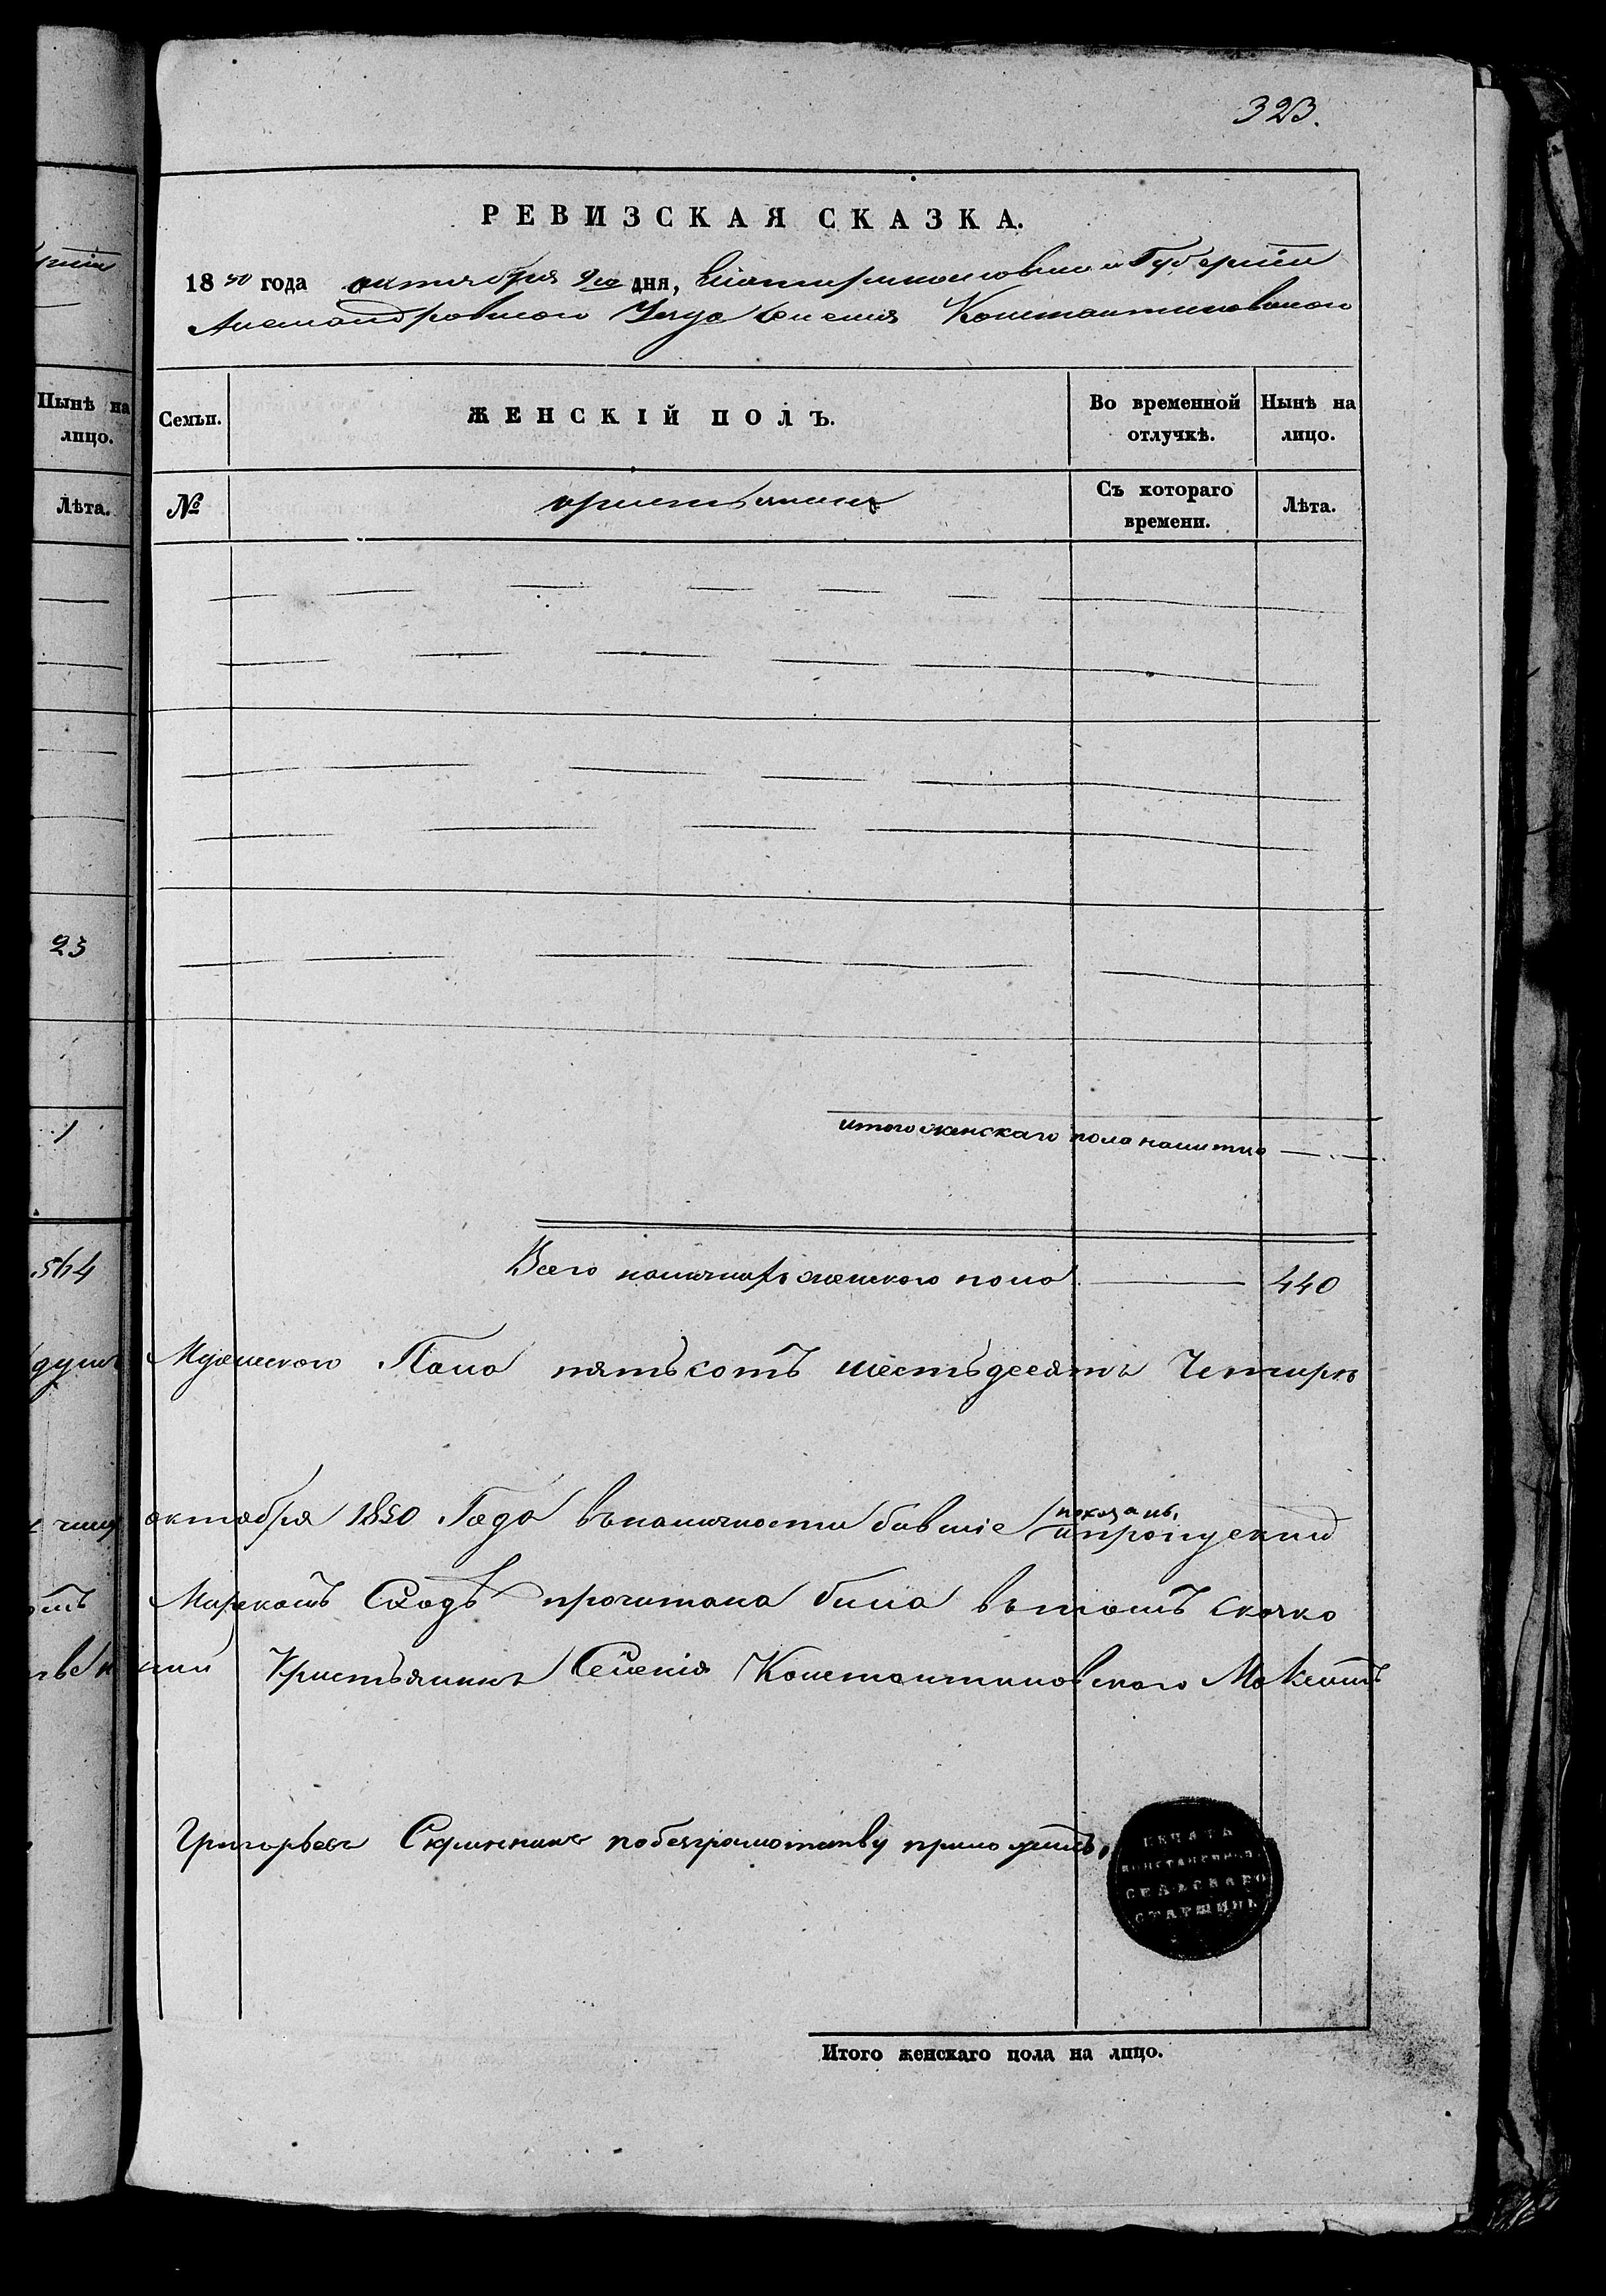 323.
РЕВИЗСКАЯ СКАЗКА.
1850 года октября 9го дня, Екатеринославской Губернiи
Александровского Уезда Селения Константиновского
Нынѣ на лицо.
Семьи.
ЖЕНСКІЙ ПОЛЪ.
Во временной отлучкѣ.
Нынѣ на лицо.
Лѣта.
№
крестьянинъ
Съ котораго времени.
Лѣта.
23
1
итого женскаго пола налитцо
564
Всего наличнаго женского пола 440
душъ Мужеского Пола пятьсотъ шестьдесятъ Четыре
октября 1850 Года въналичности бывшіе показаны,
Мирскомъ Сходѣ прочитана била втомъ
Крестьянинъ Селенія Константиновского
Григорьевъ Скрыпникъ побезграмотству приложилъ,
ПЕЧАТЬ
КОНСТАНТИНОВ.
СЕЛЬСКАГО
СТАРШИНЫ
Итого женскаго пола на лицо.